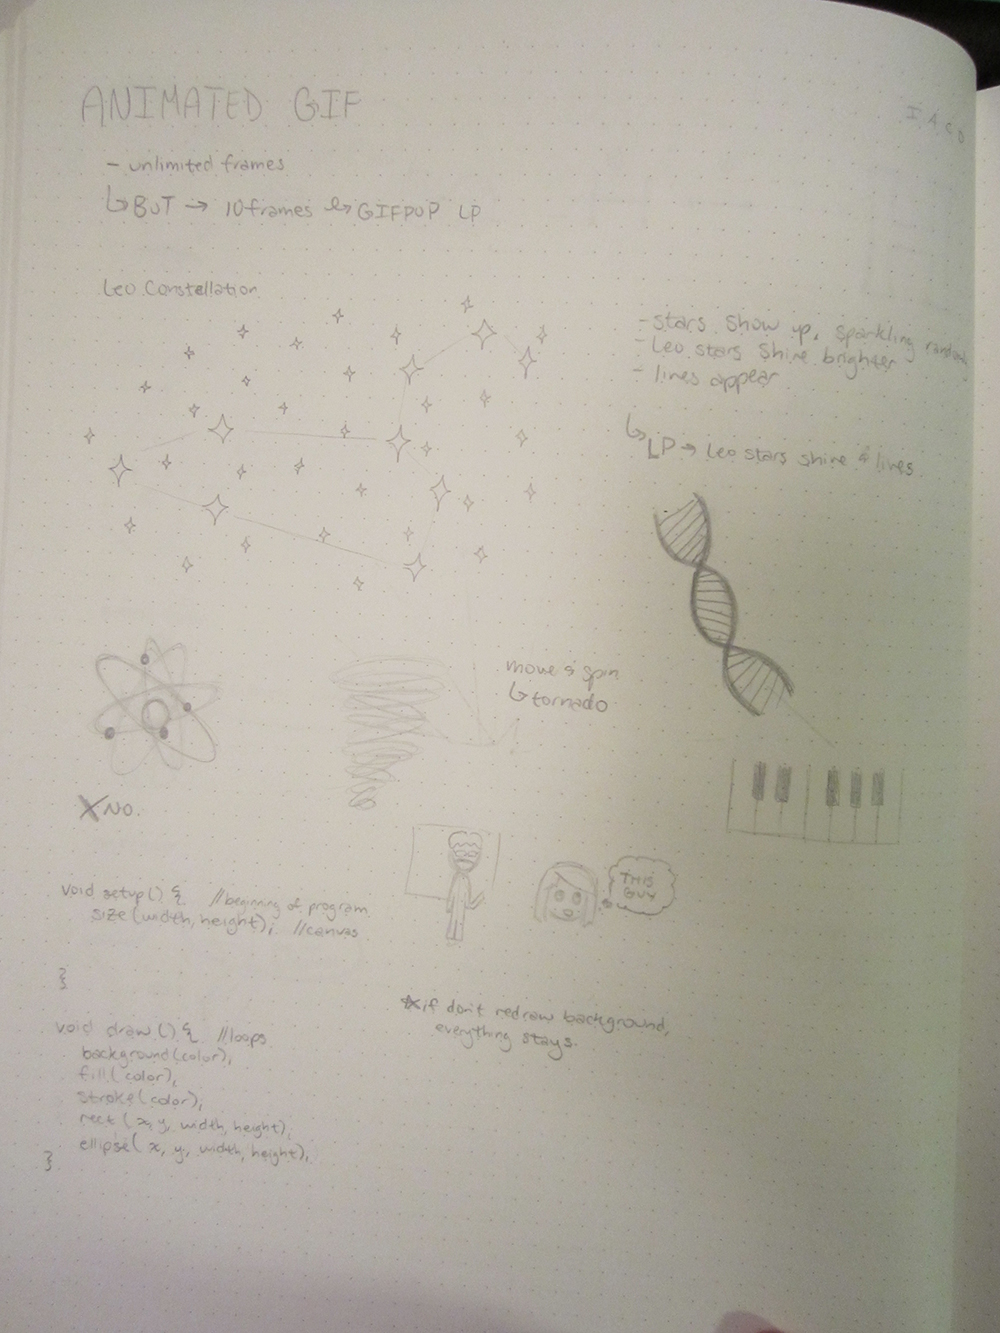 ANIMATED GIF
I A C D
- unlimited frames
↳ BUT → 10 frames ↳ GIFPOP LP
Leo Constellation
- stars show up, sparkling randomly
- Leo stars shine brighter
- lines appear
↳ LP → Leo stars shine & lines
move & spin
↳ tornado
X NO.
THIS
GUY
void setup() { //beginning of program
size(width, height); //canvas
}
☆ if don't redraw background,
everything stays.
void draw() { //loops
background(color);
fill(color);
stroke(color);
rect(x, y, width, height);
ellipse(x, y, width, height);
}